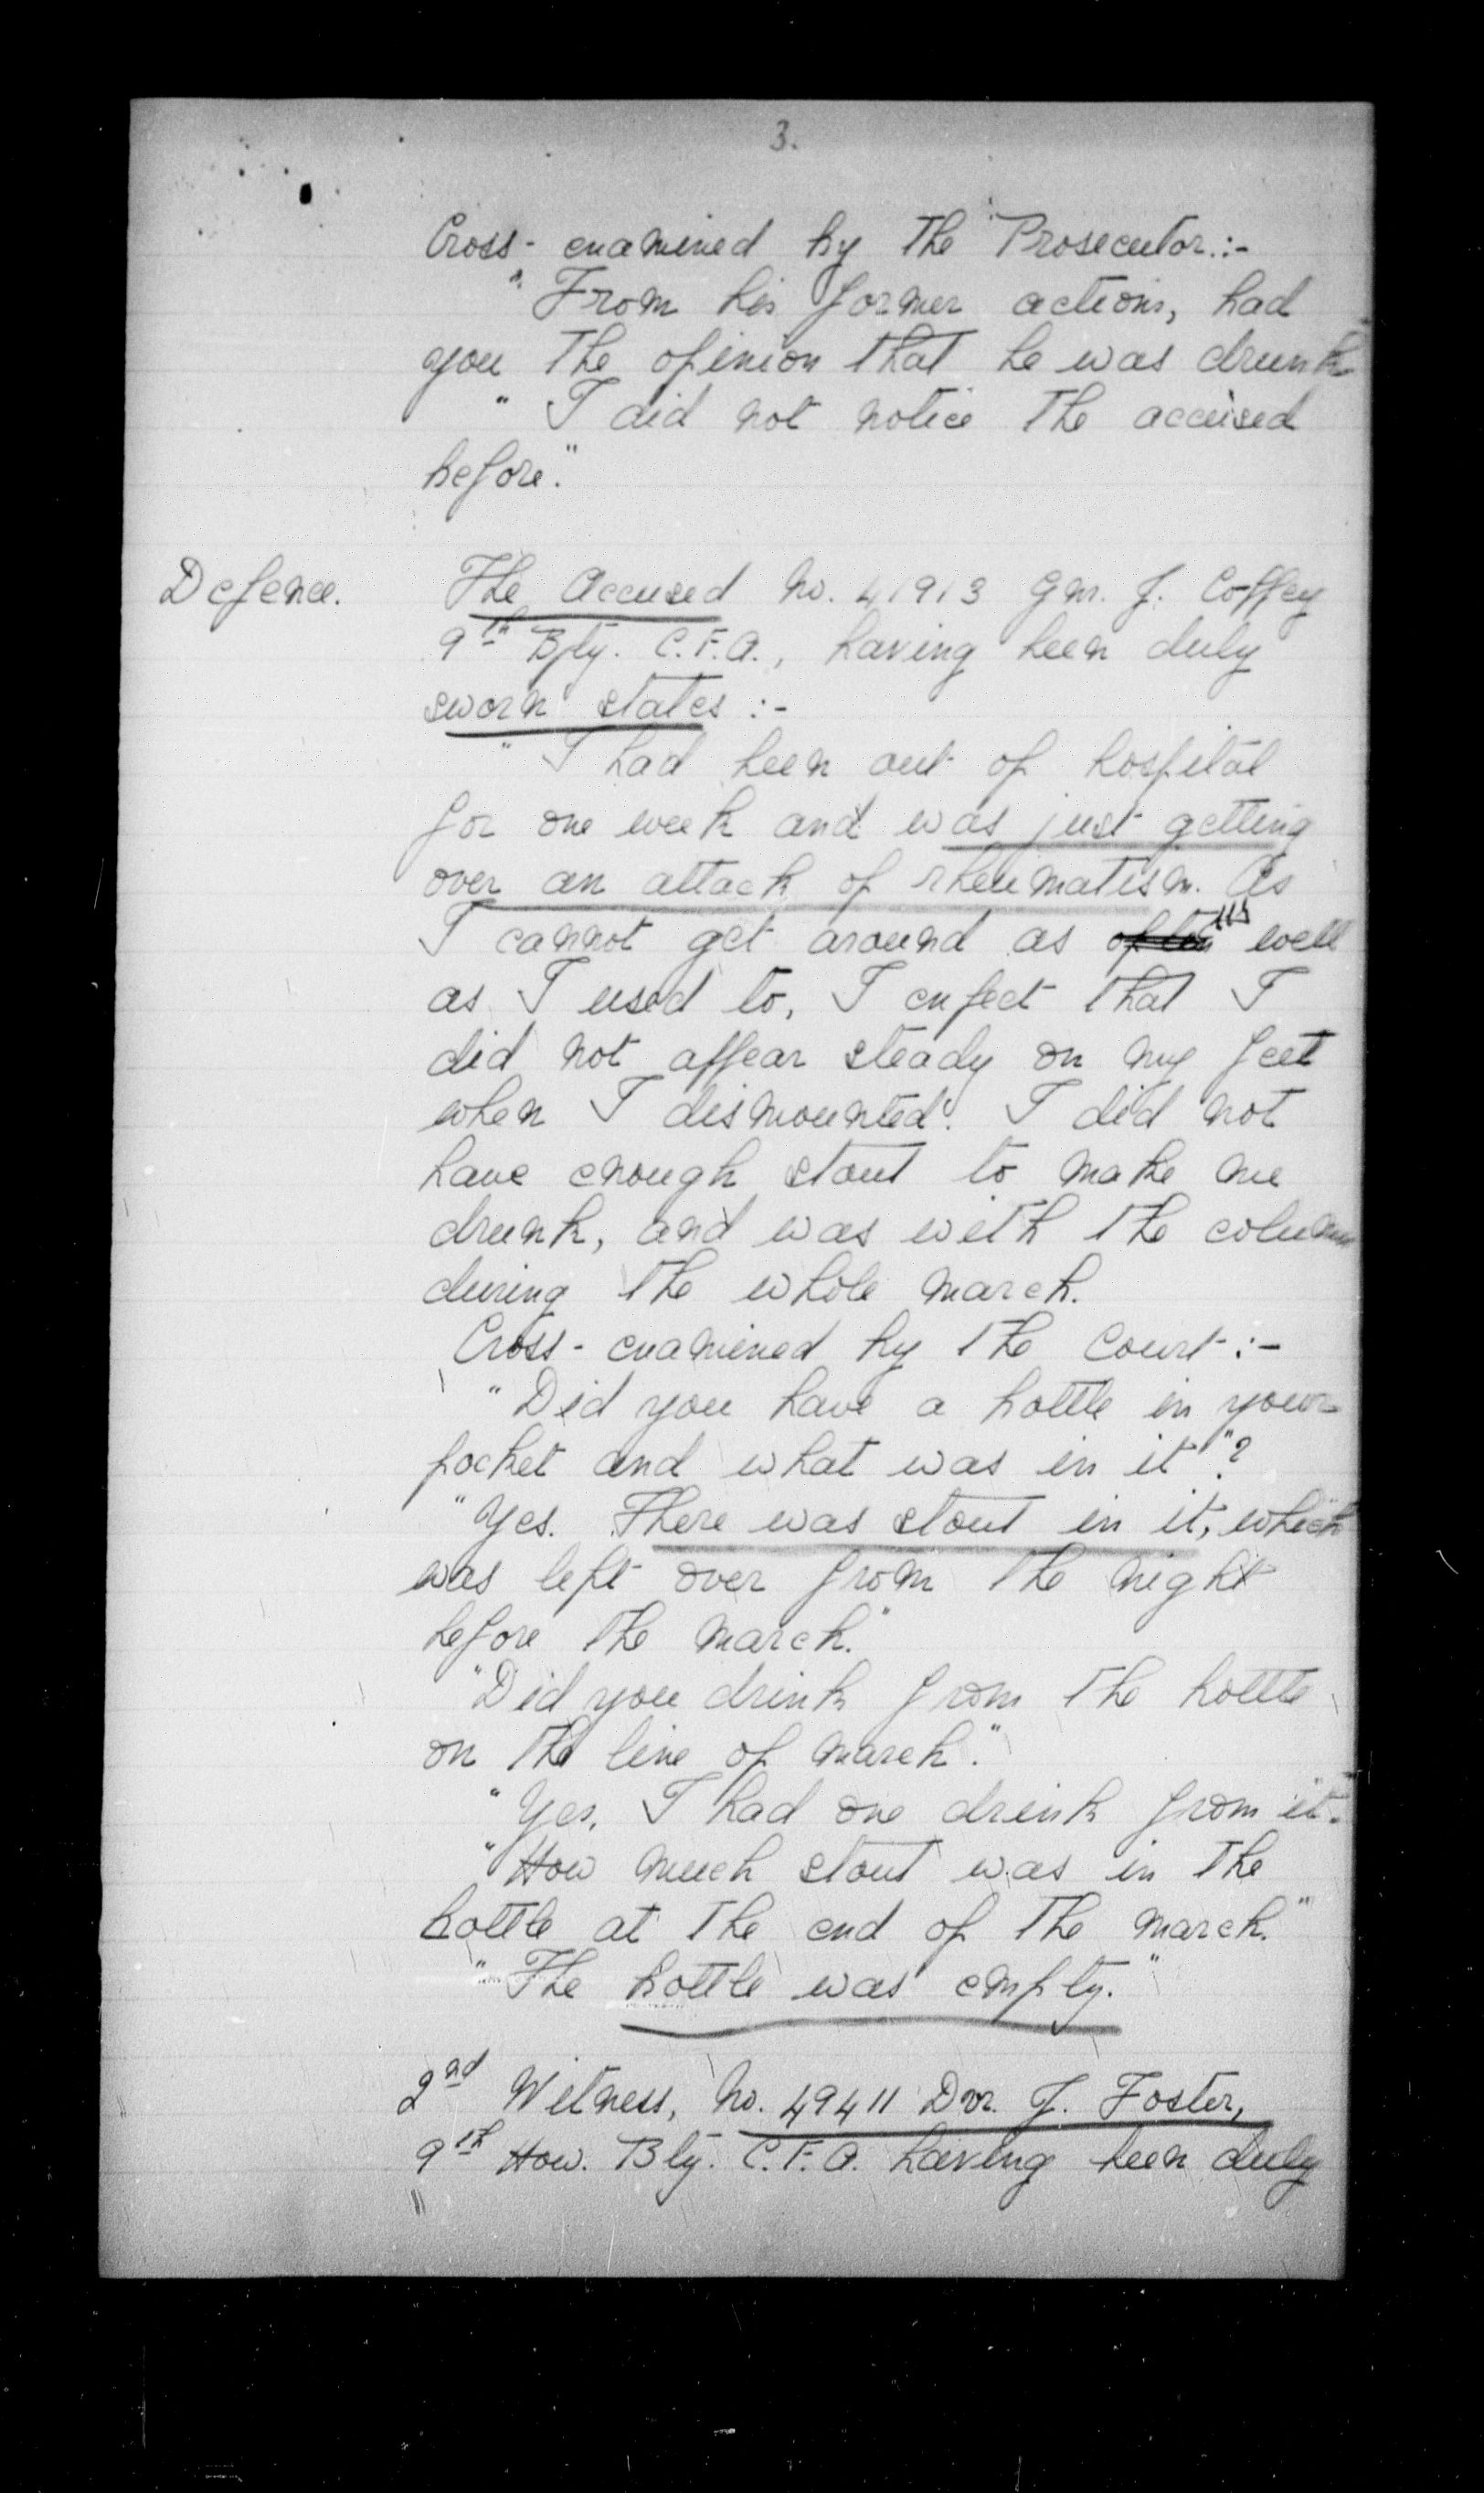 3.
Cross-examined by the Prosecutor:-
"From his former actions, had
you the opinion that he was drunk
" I did not notice the accused
before."
Defence.
The Accused No. 41913 Gnr. J. Coffey
9th Bty. C.F.A., having been duly
sworn states :-
" I had been out of hospital
for one week and was just getting
over an attack of rheumatism. As
I cannot get around as often well
as I used to, I expect that I
did not appear steady on my feet
when I dismounted. I did not
have enough stout to make me
drunk, and was with the column
during the whole march.
Cross-examined by the Court :-
"Did you have a bottle in your
pocket and what was in it"?
"Yes. There was stout in it, which
was left over from the night
before the march."
"Did you drink from the bottle
on the line of march."
"Yes, I had one drink from it.
"How much stout was in the
bottle at the end of the march."
"The bottle was empty."
2nd Witness, No. 49411 Dvr. J. Foster,
9th How. Bty. C.F.A. having been duly